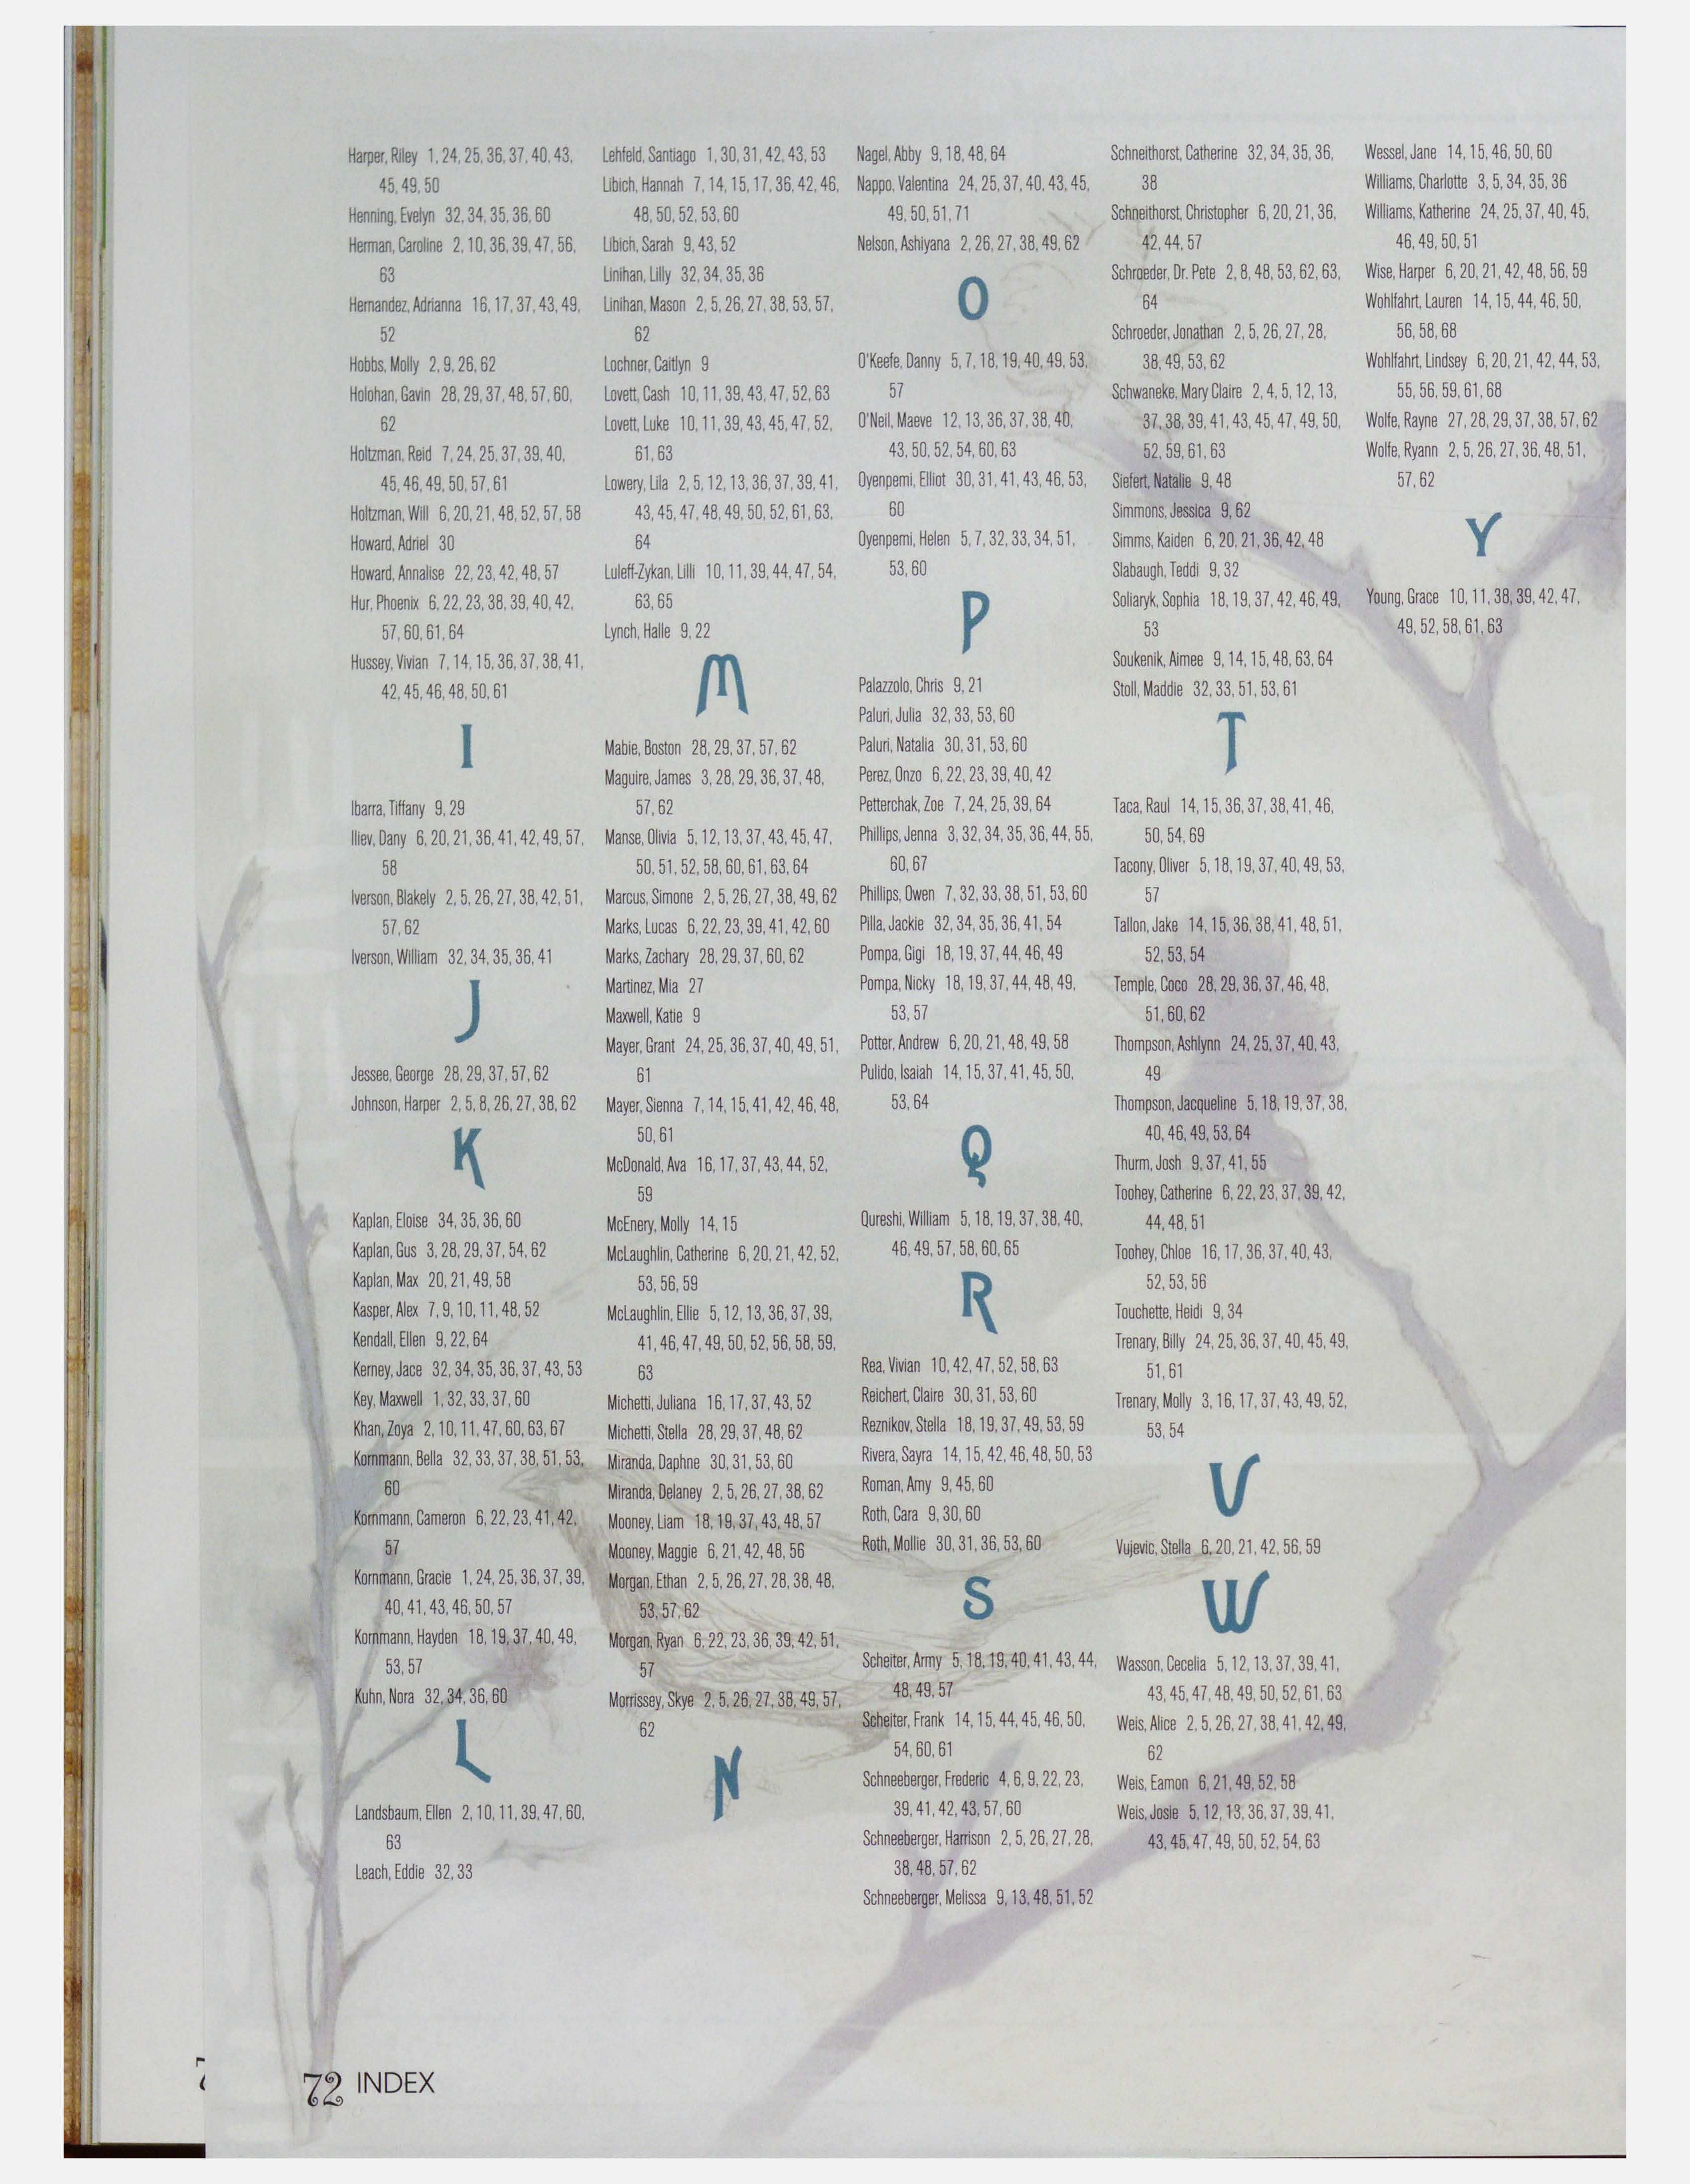 Harper, Riley 1, 24, 25, 36, 37, 40, 43,
45, 49, 50
Henning, Evelyn 32, 34, 35, 36, 60
Herman, Caroline 2, 10, 36, 39, 47, 56,
63
Hernandez, Adrianna 16, 17, 37, 43, 49,
52
Hobbs, Molly 2, 9, 26, 62
Holohan, Gavin 28, 29, 37, 48, 57, 60,
62
Holtzman, Reid 7, 24, 25, 37, 39, 40,
45, 46, 49, 50, 57, 61
Holtzman, Will 6, 20, 21, 48, 52, 57, 58
Howard, Adriel 30
Howard, Annalise 22, 23, 42, 48, 57
Hur, Phoenix 6, 22, 23, 38, 39, 40, 42,
57, 60, 61, 64
Hussey, Vivian 7, 14, 15, 36, 37, 38, 41,
42, 45, 46, 48, 50, 61
I
Ibarra, Tiffany 9, 29
Iliev, Dany 6, 20, 21, 36, 41, 42, 49, 57,
58
Iverson, Blakely 2, 5, 26, 27, 38, 42, 51,
57, 62
Iverson, William 32, 34, 35, 36, 41
J
Jessee, George 28, 29, 37, 57, 62
Johnson, Harper 2, 5, 8, 26, 27, 38, 62
K
Kaplan, Eloise 34, 35, 36, 60
Kaplan, Gus 3, 28, 29, 37, 54, 62
Kaplan, Max 20, 21, 49, 58
Kasper, Alex 7, 9, 10, 11, 48, 52
Kendall, Ellen 9, 22, 64
Kerney, Jace 32, 34, 35, 36, 37, 43, 53
Key, Maxwell 1, 32, 33, 37, 60
Khan, Zoya 2, 10, 11, 47, 60, 63, 67
Kornmann, Bella 32, 33, 37, 38, 51, 53,
60
Kornmann, Cameron 6, 22, 23, 41, 42,
57
Kornmann, Gracie 1, 24, 25, 36, 37, 39,
40, 41, 43, 46, 50, 57
Kornmann, Hayden 18, 19, 37, 40, 49,
53, 57
Kuhn, Nora 32, 34, 36, 60
L
Landsbaum, Ellen 2, 10, 11, 39, 47, 60,
63
Leach, Eddie 32, 33
Lehfeld, Santiago 1, 30, 31, 42, 43, 53
Libich, Hannah 7, 14, 15, 17, 36, 42, 46,
48, 50, 52, 53, 60
Libich, Sarah 9, 43, 52
Linihan, Lilly 32, 34, 35, 36
Linihan, Mason 2, 5, 26, 27, 38, 53, 57,
62
Lochner, Caitlyn 9
Lovett, Cash 10, 11, 39, 43, 47, 52, 63
Lovett, Luke 10, 11, 39, 43, 45, 47, 52,
61, 63
Lowery, Lila 2, 5, 12, 13, 36, 37, 39, 41,
43, 45, 47, 48, 49, 50, 52, 61, 63,
64
Luleff-Zykan, Lilli 10, 11, 39, 44, 47, 54,
63, 65
Lynch, Halle 9, 22
M
Mabie, Boston 28, 29, 37, 57, 62
Maguire, James 3, 28, 29, 36, 37, 48,
57, 62
Manse, Olivia 5, 12, 13, 37, 43, 45, 47,
50, 51, 52, 58, 60, 61, 63, 64
Marcus, Simone 2, 5, 26, 27, 38, 49, 62
Marks, Lucas 6, 22, 23, 39, 41, 42, 60
Marks, Zachary 28, 29, 37, 60, 62
Martinez, Mia 27
Maxwell, Katie 9
Mayer, Grant 24, 25, 36, 37, 40, 49, 51,
61
Mayer, Sienna 7, 14, 15, 41, 42, 46, 48,
50, 61
McDonald, Ava 16, 17, 37, 43, 44, 52,
59
McEnery, Molly 14, 15
McLaughlin, Catherine 6, 20, 21, 42, 52,
53, 56, 59
McLaughlin, Ellie 5, 12, 13, 36, 37, 39,
41, 46, 47, 49, 50, 52, 56, 58, 59,
63
Michetti, Juliana 16, 17, 37, 43, 52
Michetti, Stella 28, 29, 37, 48, 62
Miranda, Daphne 30, 31, 53, 60
Miranda, Delaney 2, 5, 26, 27, 38, 62
Mooney, Liam 18, 19, 37, 43, 48, 57
Mooney, Maggie 6, 21, 42, 48, 56
Morgan, Ethan 2, 5, 26, 27, 28, 38, 48,
53, 57, 62
Morgan, Ryan 6, 22, 23, 36, 39, 42, 51,
57
Morrissey, Skye 2, 5, 26, 27, 38, 49, 57,
62
N
Nagel, Abby 9, 18, 48, 64
Nappo, Valentina 24, 25, 37, 40, 43, 45,
49, 50, 51, 71
Nelson, Ashiyana 2, 26, 27, 38, 49, 62
O
O'Keefe, Danny 5, 7, 18, 19, 40, 49, 53,
57
O'Neil, Maeve 12, 13, 36, 37, 38, 40,
43, 50, 52, 54, 60, 63
Oyenpemi, Elliot 30, 31, 41, 43, 46, 53,
60
Oyenpemi, Helen 5, 7, 32, 33, 34, 51,
53, 60
P
Palazzolo, Chris 9, 21
Paluri, Julia 32, 33, 53, 60
Paluri, Natalia 30, 31, 53, 60
Perez, Onzo 6, 22, 23, 39, 40, 42
Petterchak, Zoe 7, 24, 25, 39, 64
Phillips, Jenna 3, 32, 34, 35, 36, 44, 55,
60, 67
Phillips, Owen 7, 32, 33, 38, 51, 53, 60
Pilla, Jackie 32, 34, 35, 36, 41, 54
Pompa, Gigi 18, 19, 37, 44, 46, 49
Pompa, Nicky 18, 19, 37, 44, 48, 49,
53, 57
Potter, Andrew 6, 20, 21, 48, 49, 58
Pulido, Isaiah 14, 15, 37, 41, 45, 50,
53, 64
Q
Qureshi, William 5, 18, 19, 37, 38, 40,
46, 49, 57, 58, 60, 65
R
Rea, Vivian 10, 42, 47, 52, 58, 63
Reichert, Claire 30, 31, 53, 60
Reznikov, Stella 18, 19, 37, 49, 53, 59
Rivera, Sayra 14, 15, 42, 46, 48, 50, 53
Roman, Amy 9, 45, 60
Roth, Cara 9, 30, 60
Roth, Mollie 30, 31, 36, 53, 60
S
Scheiter, Army 5, 18, 19, 40, 41, 43, 44,
48, 49, 57
Scheiter, Frank 14, 15, 44, 45, 46, 50,
54, 60, 61
Schneeberger, Frederic 4, 6, 9, 22, 23,
39, 41, 42, 43, 57, 60
Schneeberger, Harrison 2, 5, 26, 27, 28,
38, 48, 57, 62
Schneeberger, Melissa 9, 13, 48, 51, 52
Schneithorst, Catherine 32, 34, 35, 36,
38
Schneithorst, Christopher 6, 20, 21, 36,
42, 44, 57
Schroeder, Dr. Pete 2, 8, 48, 53, 62, 63,
64
Schroeder, Jonathan 2, 5, 26, 27, 28,
38, 49, 53, 62
Schwaneke, Mary Claire 2, 4, 5, 12, 13,
37, 38, 39, 41, 43, 45, 47, 49, 50,
52, 59, 61, 63
Siefert, Natalie 9, 48
Simmons, Jessica 9, 62
Simms, Kaiden 6, 20, 21, 36, 42, 48
Slabaugh, Teddi 9, 32
Soliaryk, Sophia 18, 19, 37, 42, 46, 49,
53
Soukenik, Aimee 9, 14, 15, 48, 63, 64
Stoll, Maddie 32, 33, 51, 53, 61
T
Taca, Raul 14, 15, 36, 37, 38, 41, 46,
50, 54, 69
Tacony, Oliver 5, 18, 19, 37, 40, 49, 53,
57
Tallon, Jake 14, 15, 36, 38, 41, 48, 51,
52, 53, 54
Temple, Coco 28, 29, 36, 37, 46, 48,
51, 60, 62
Thompson, Ashlynn 24, 25, 37, 40, 43,
49
Thompson, Jacqueline 5, 18, 19, 37, 38,
40, 46, 49, 53, 64
Thurm, Josh 9, 37, 41, 55
Toohey, Catherine 6, 22, 23, 37, 39, 42,
44, 48, 51
Toohey, Chloe 16, 17, 36, 37, 40, 43,
52, 53, 56
Touchette, Heidi 9, 34
Trenary, Billy 24, 25, 36, 37, 40, 45, 49,
51, 61
Trenary, Molly 3, 16, 17, 37, 43, 49, 52,
53, 54
V
Vujevic, Stella 6, 20, 21, 42, 56, 59
W
Wasson, Cecelia 5, 12, 13, 37, 39, 41,
43, 45, 47, 48, 49, 50, 52, 61, 63
Weis, Alice 2, 5, 26, 27, 38, 41, 42, 49,
62
Weis, Eamon 6, 21, 49, 52, 58
Weis, Josie 5, 12, 13, 36, 37, 39, 41,
43, 45, 47, 49, 50, 52, 54, 63
Wessel, Jane 14, 15, 46, 50, 60
Williams, Charlotte 3, 5, 34, 35, 36
Williams, Katherine 24, 25, 37, 40, 45,
46, 49, 50, 51
Wise, Harper 6, 20, 21, 42, 48, 56, 59
Wohlfahrt, Lauren 14, 15, 44, 46, 50,
56, 58, 68
Wohlfahrt, Lindsey 6, 20, 21, 42, 44, 53,
55, 56, 59, 61, 68
Wolfe, Rayne 27, 28, 29, 37, 38, 57, 62
Wolfe, Ryann 2, 5, 26, 27, 36, 48, 51,
57, 62
Y
Young, Grace 10, 11, 38, 39, 42, 47,
49, 52, 58, 61, 63
72 INDEX